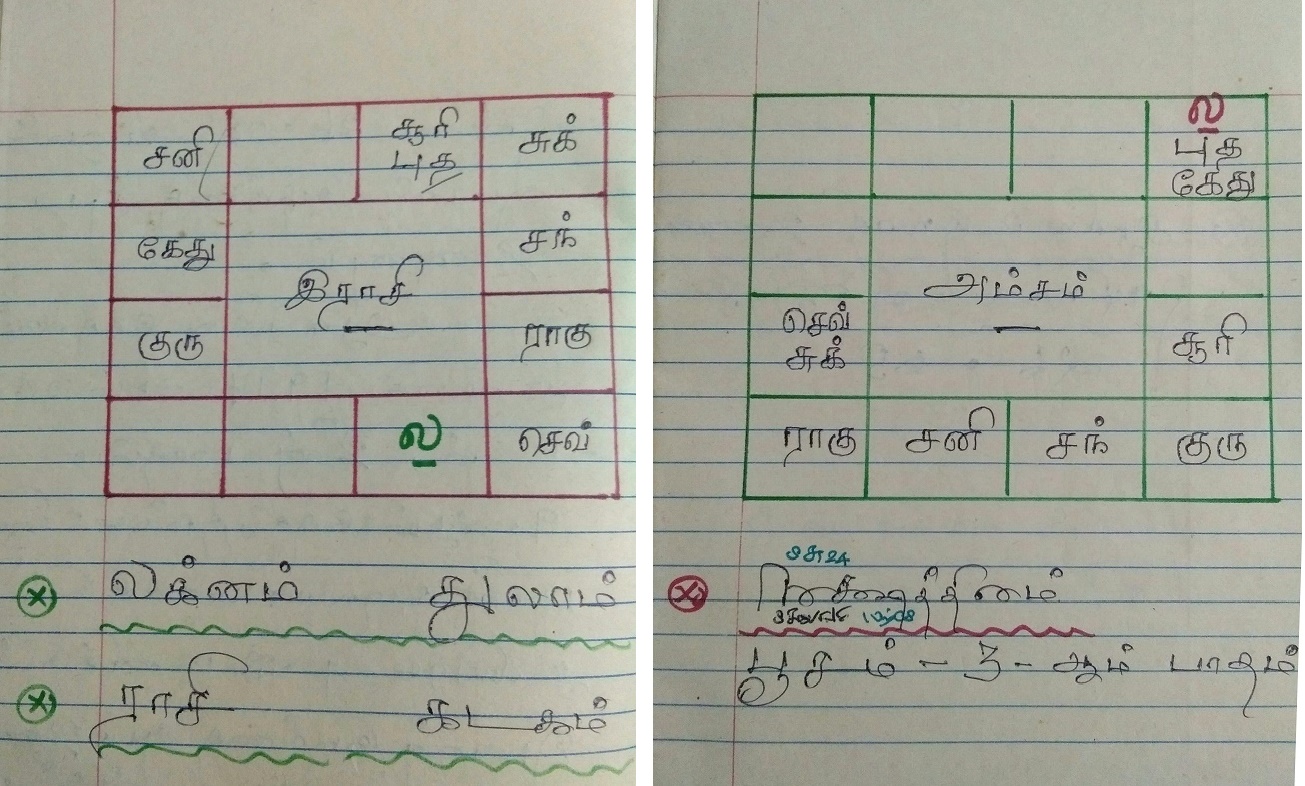 சனி
சூரி
புத
சுக்
கேது
சந்
இராசி
குரு
ராகு
ல
செவ்
லக்னம் துலாம்
ராசி கடகம்
ல
புத
கேது
அம்சம்
செவ்
சுக்
சூரி
ராகு
சனி
சந்
குரு
நட்சத்திரம்
பூசம் - 3 - ஆம் பாதம்